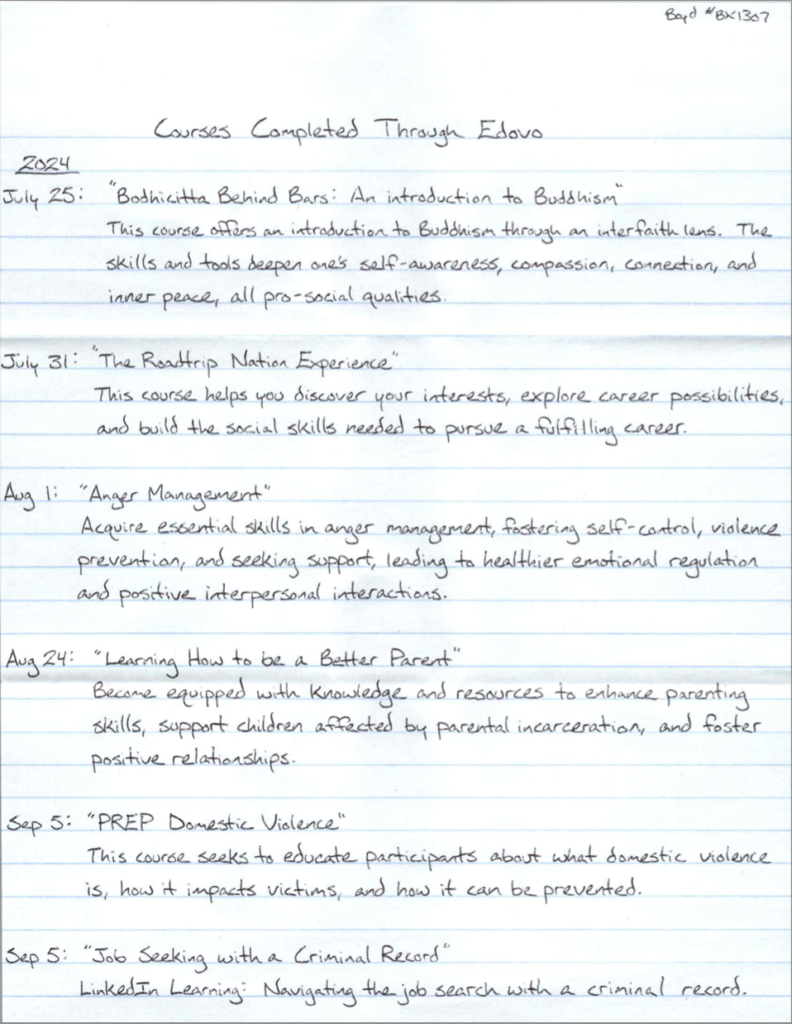 Boyd #BX1307
Courses Completed Through Edovo
2024
July 25: "Bodhicitta Behind Bars: An introduction to Buddhism"
This course offers an introduction to Buddhism through an interfaith lens. The
skills and tools deepen one's self-awareness, compassion, connection, and
inner peace, all pro-social qualities.
July 31: "The Roadtrip Nation Experience"
This course helps you discover your interests, explore career possibilities,
and build the social skills needed to pursue a fulfilling career.
Aug 1: "Anger Management"
Acquire essential skills in anger management, fostering self-control, violence
prevention, and seeking support, leading to healthier emotional regulation
and positive interpersonal interactions.
Aug 24: "Learning How to be a Better Parent"
Become equipped with knowledge and resources to enhance parenting
skills, support children affected by parental incarceration, and foster
positive relationships.
Sep 5: "PREP Domestic Violence"
This course seeks to educate participants about what domestic violence
is, how it impacts victims, and how it can be prevented.
Sep 5: "Job Seeking with a Criminal Record"
LinkedIn Learning: Navigating the job search with a criminal record.